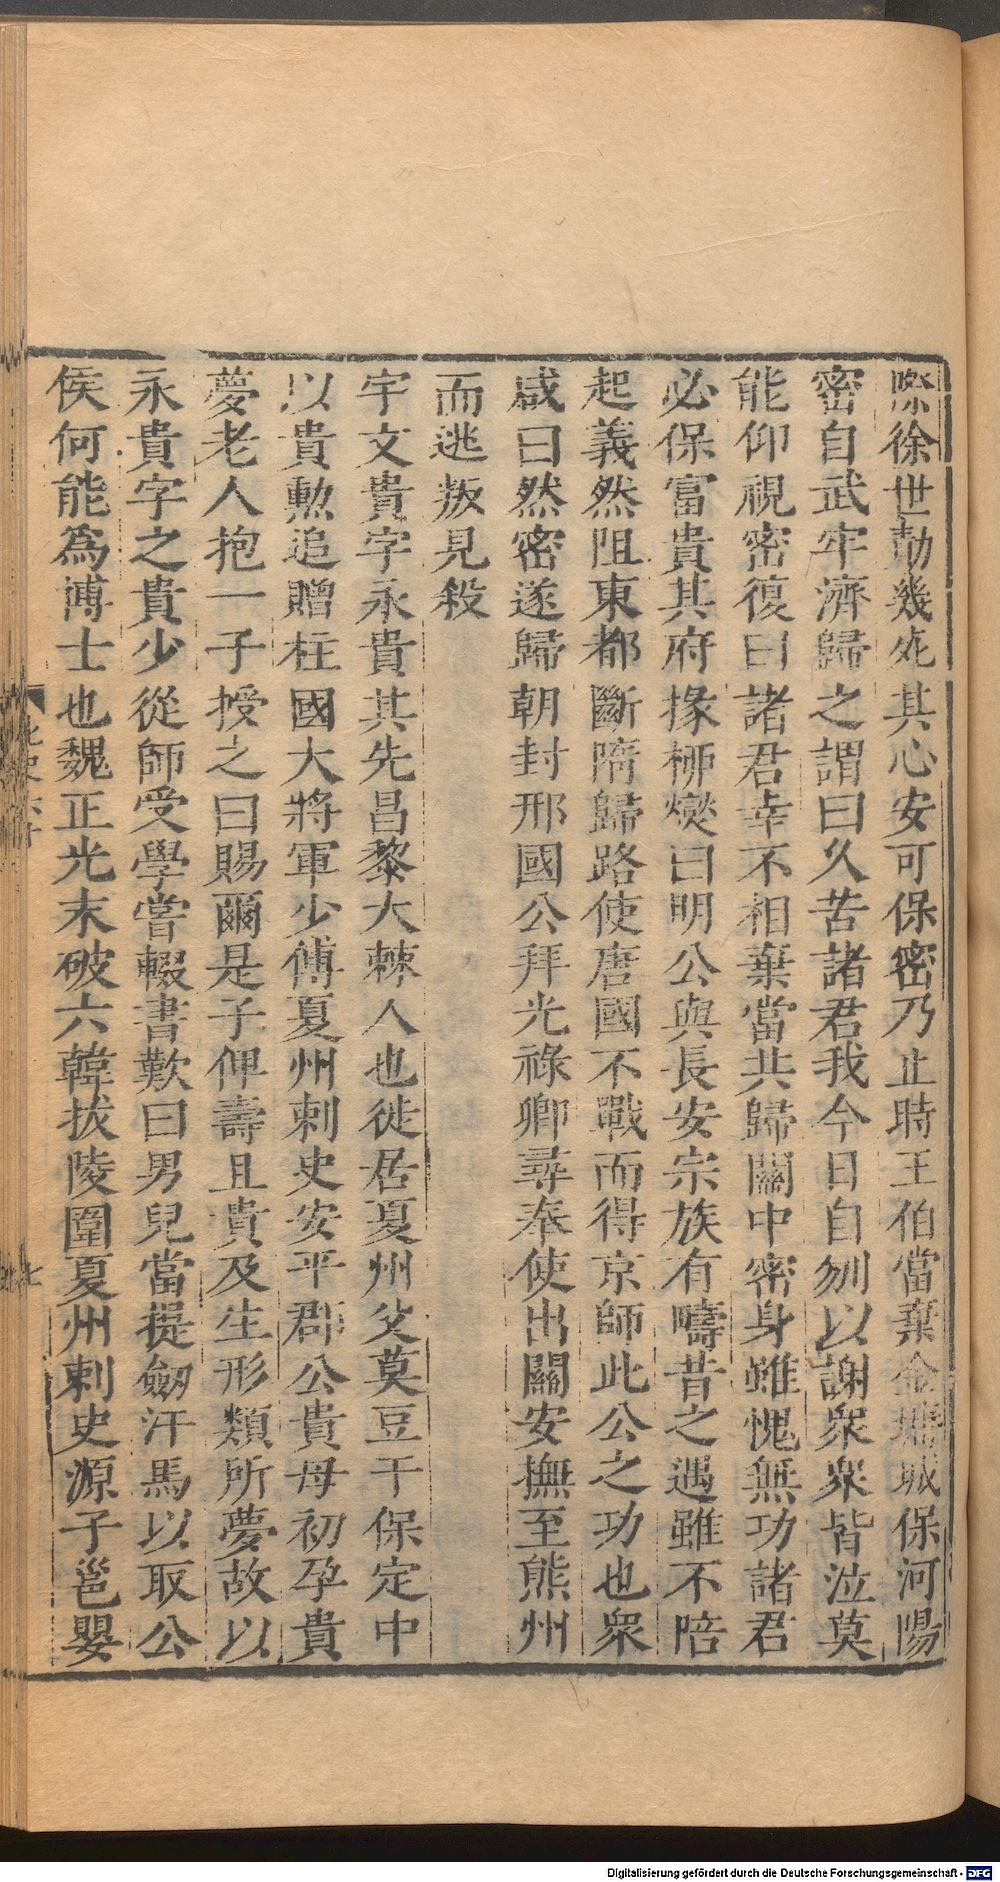 際徐世勣幾死其心安可保密乃止時王伯當棄金墉城保河陽
密自武牢濟歸之謂曰久苦諸君我今日自刎以謝衆衆皆泣莫
能仰視密復曰諸君幸不相棄當共歸關中密身雖愧無功諸君
必保富貴其府掾栁爕曰明公與長安宗族有疇昔之遇雖不陪
起義然阻東都斷隋歸路使唐國不戰而得京師此公之功也衆
咸曰然密遂歸朝封邢國公拜光祿卿尋奉使出關安撫至熊州
而逃叛見殺
宇文貴字永貴其先昌黎大棘人也徙居夏州父莫豆干保定中
以貴勲追贈柱國大將軍少傅夏州刺史安平郡公貴母初孕貴
夢老人抱一子授之曰賜爾是子俾壽且貴及生形類所夢故以
永貴字之貴少從師受學嘗輟書歎曰男兒當提劒汗馬以取公
侯何能爲博士也魏正光末破六韓拔陵圍夏州刺史源子邕嬰
Digitalisierung gefördert durch die Deutsche Forschungsgemeinschaft - DFG